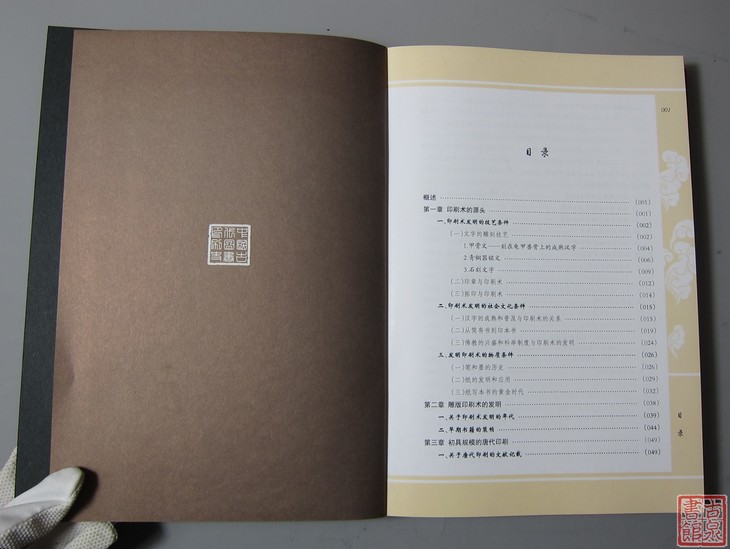 001
目录
概述 (001)
第一章 印刷术的源头 (001)
一、印刷术发明的技艺条件 (002)
(一)文字的雕刻技艺 (002)
1.甲骨文——刻在龟甲兽骨上的成熟汉字 (004)
2.青铜器铭文 (006)
3.石刻文字 (009)
(二)印章与印刷术 (012)
(三)拓印与印刷术 (014)
二、印刷术发明的社会文化条件 (015)
(一)汉字的成熟和普及与印刷术的关系 (015)
(二)从简帛书到印本书 (019)
(三)佛教的兴盛和科举制度与印刷术的发明 (024)
三、发明印刷术的物质条件 (026)
(一)笔和墨的历史 (026)
(二)纸的发明和应用 (029)
(三)纸写本书的黄金时代 (032)
第二章 雕版印刷术的发明 (038)
一、关于印刷术发明的年代 (039)
二、早期书籍的装帧 (044)
第三章 初具规模的唐代印刷 (049)
一、关于唐代印刷的文献记载 (049)
目录